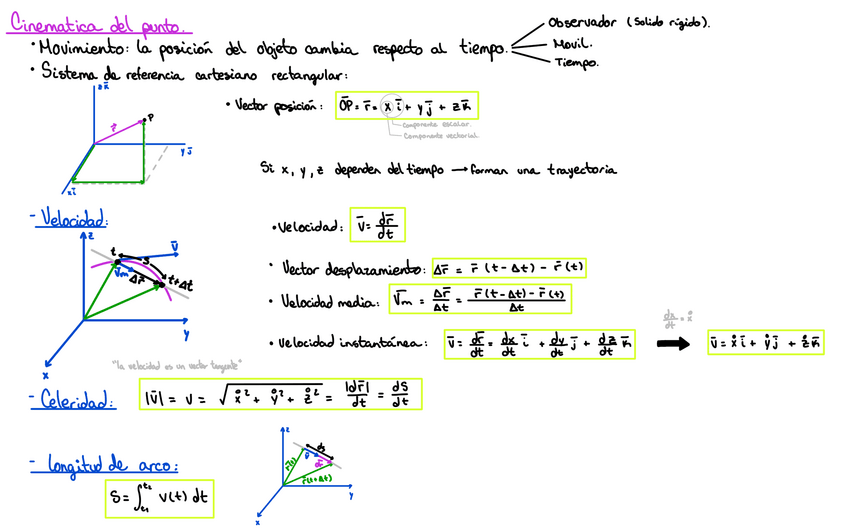 Cinematica del punto.
• Movimiento: la posición del objeto cambia respecto al tiempo.
Observador (Solido rígido).
Movil.
Tiempo.
• Sistema de referencia cartesiano rectangular:
z k̄
P
r̄
y j̄
x ī
• Vector posición: O̅P̅ = r̄ = x ī + y j̄ + z k̄
componente escalar.
componente vectorial.
Si x, y, z dependen del tiempo → forman una trayectoria
- Velocidad:
z
t
S
v̄
v̄m
Δr̄
t+Δt
y
x
• Velocidad: v̄ = dr̄/dt
• Vector desplazamiento: Δr̄ = r̄ (t - Δt) - r̄ (t)
• Velocidad media: v̄m = Δr̄/Δt = r̄(t-Δt) - r̄(t)/Δt
dx/dt = ẋ
• Velocidad instantánea: v̄ = dr̄/dt = dx/dt ī + dy/dt j̄ + dz/dt k̄ → v̄ = ẋ ī + ẏ j̄ + ż k̄
"la velocidad es un vector tangente"
- Celeridad: |v̄| = v = √(ẋ² + ẏ² + ż²) = |dr̄|/dt = dS/dt
- Longitud de arco:
S = ∫ₜ₁^t₂ v(t) dt
z
ds
v̄
dr̄
r̄(t)
r̄(t+Δt)
y
x